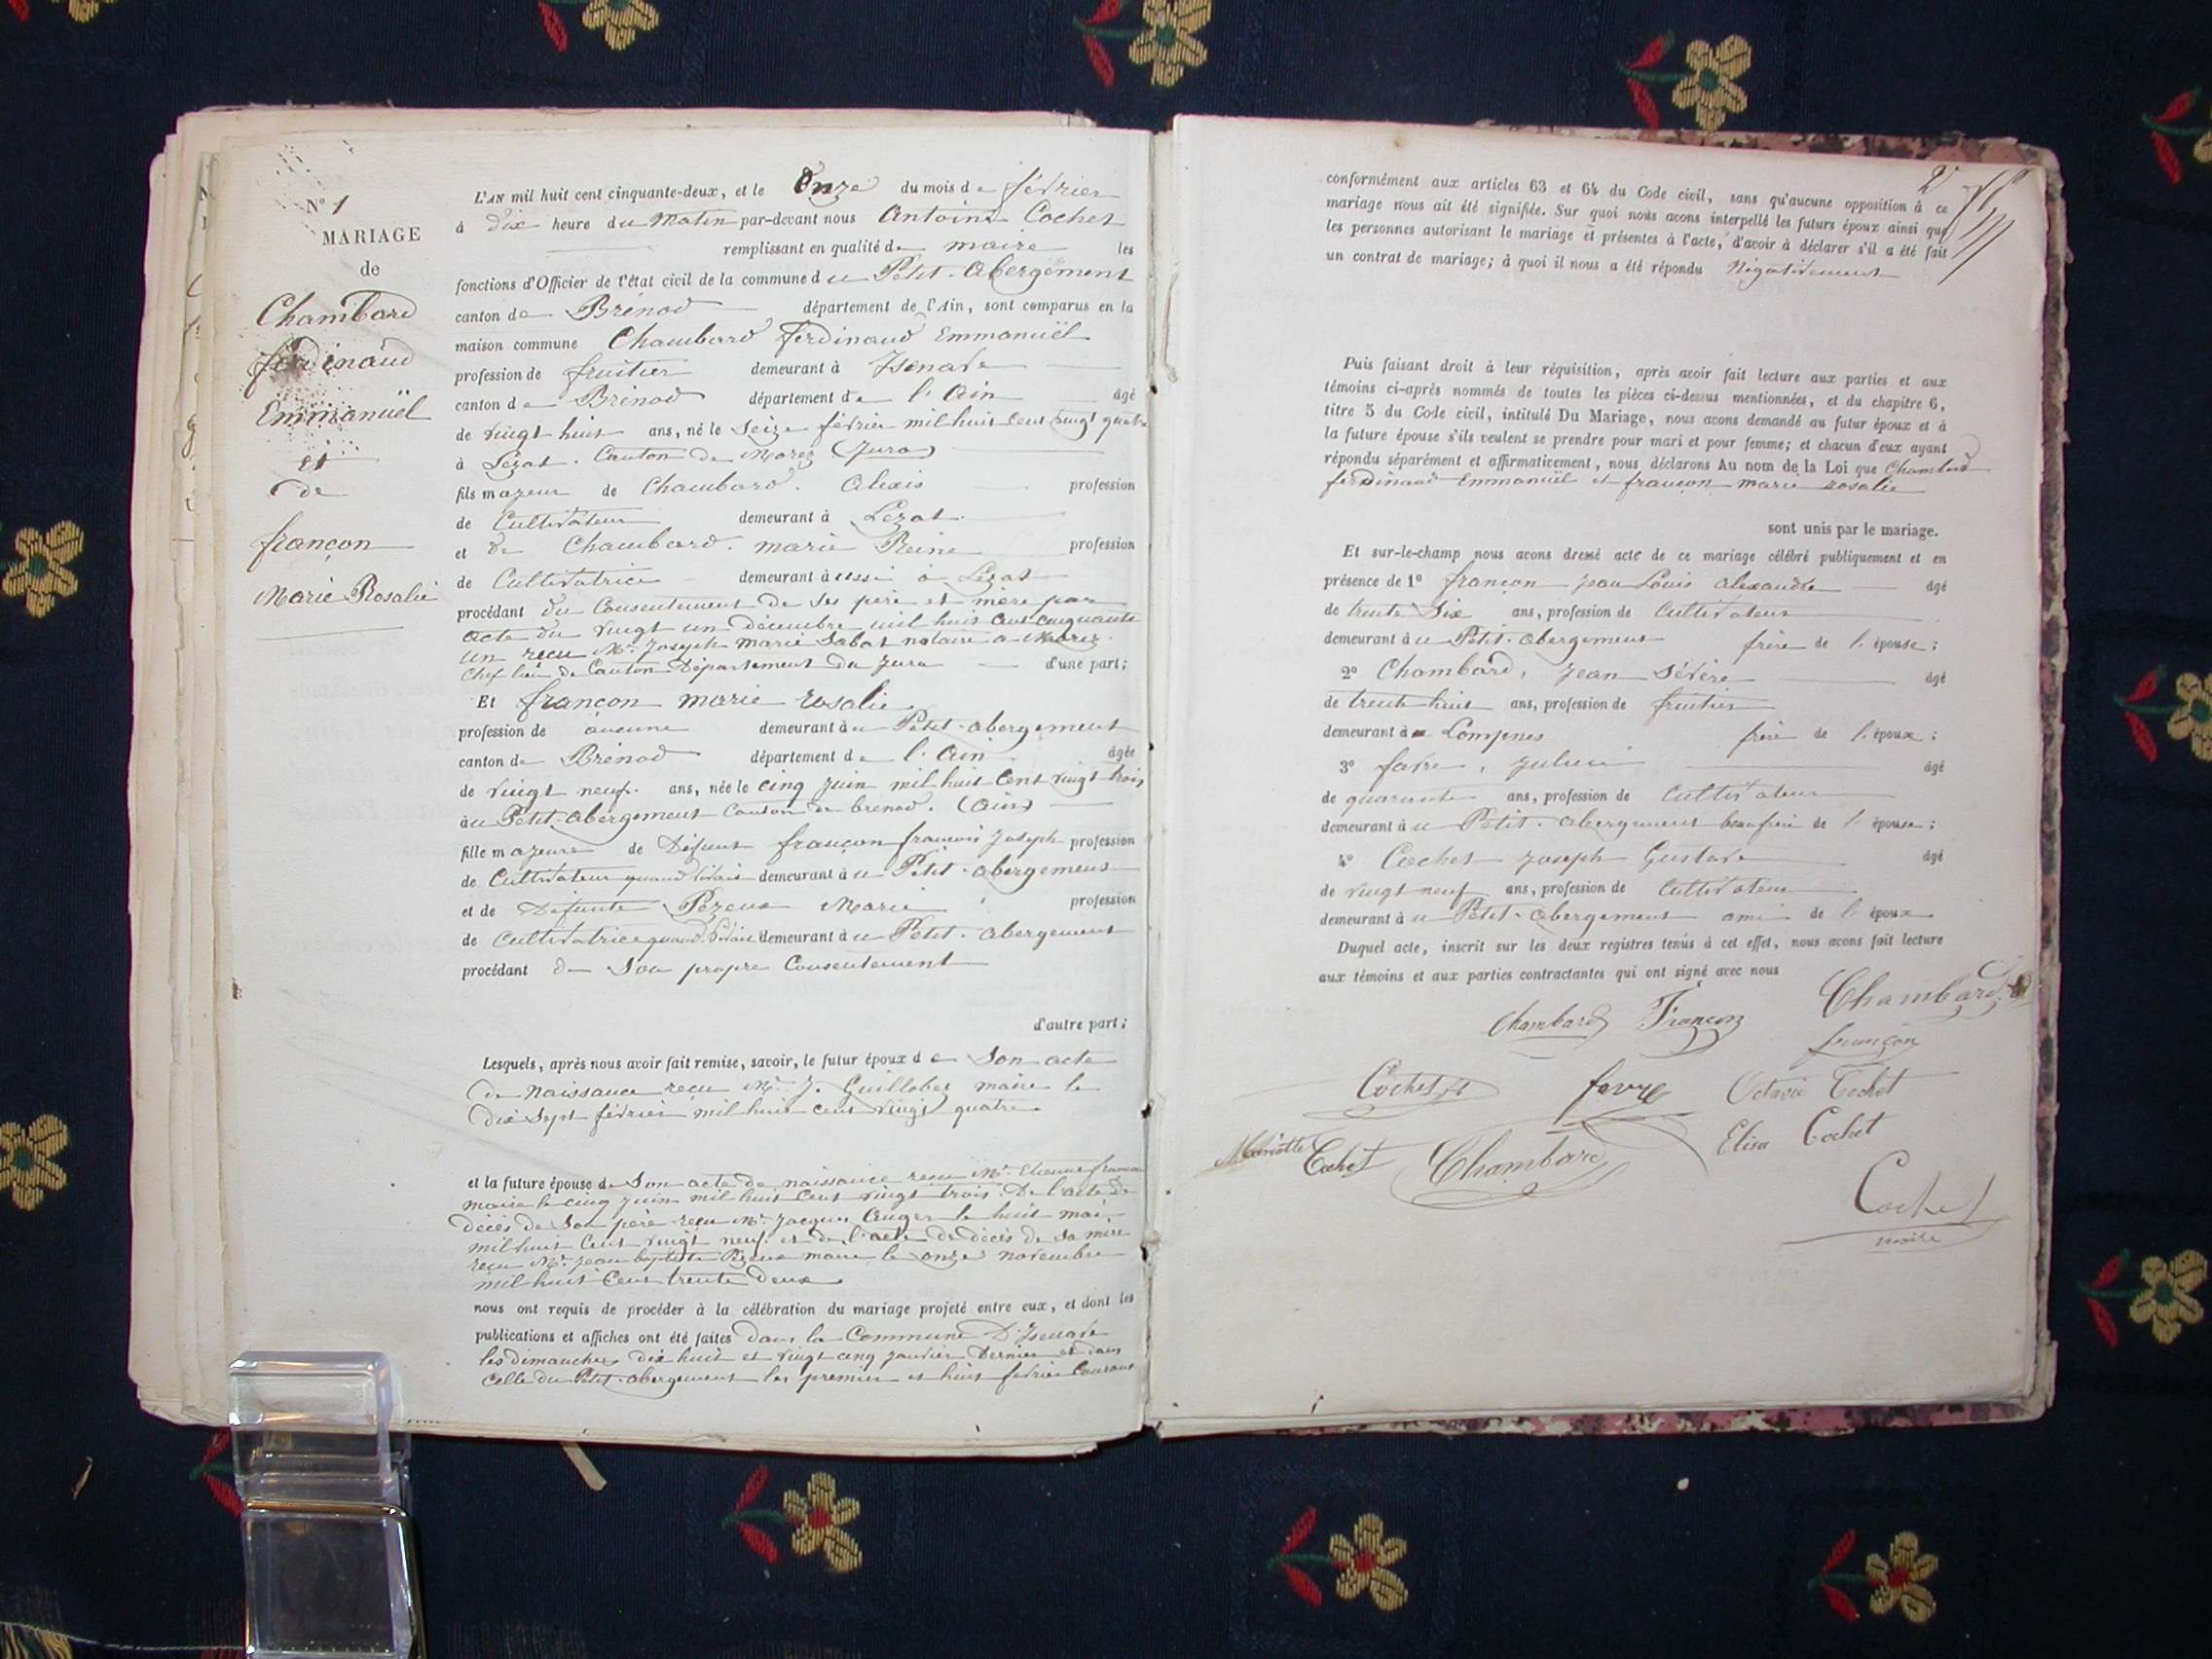 N° 1
MARIAGE
de
Chambard
ferdinand
Emmanuël
et
de
françon
Marie Rosalie
L'AN mil huit cent cinquante-deux, et le Onze du mois de février
à dix heure du Matin par-devant nous Antoine Cochet
remplissant en qualité de maire les
fonctions d'Officier de l'état civil de la commune du Petit-Abergement
canton de Brénod département de l'Ain, sont comparus en la
maison commune Chambard ferdinand Emmanuël
profession de fruitier demeurant à Izenave
canton de Brénod département de l'Ain âgé
de vingt huit ans, né le Seize février mil huit cent vingt quatre
à Lézat. Canton de Morez (Jura)
fils majeur de Chambard. Alexis profession
de Cultivateur demeurant à Lézat
et de Chambard. marie Reine profession
de Cultivatrice demeurant aussi à Lézat
procédant du Consentement de ses père et mère par
acte du vingt un décembre mil huit cent cinquante
un reçu Mr. Joseph marie Labat notaire à Morez.
Chef lieu de Canton Département du Jura d'une part;
Et françon marie rosalie
profession de aucune demeurant au Petit-abergement
canton de Brénod département de l'Ain âgée
de vingt neuf. ans, née le cinq juin mil huit cent vingt trois
au Petit-abergement Canton de brenod. (Ain)
fille majeure de Défunt françon françois Joseph profession
de Cultivateur quand vivait demeurant au Petit-abergement
et de Défunte Pezeux Marie profession
de Cultivatrice quand vivait demeurant au Petit-abergement
procédant de Son propre Consentement
d'autre part;
Lesquels, après nous avoir fait remise, savoir, le futur époux de Son acte
de Naissance reçu Mr. J. Guillobez maire le
dix Sept février mil huit cent vingt quatre
et la future épouse de Son acte de naissance reçu Mr. Etienne françon
maire le cinq juin mil huit cent vingt trois. De l'acte de
décès de Son père reçu Mr. Jacques Auger le huit mai
mil huit Cent vingt neuf. et de l'acte de décès de sa mère
reçu Mr. jean baptiste Pezeux maire le onze novembre
mil huit Cent trente deux
nous ont requis de procéder à la célébration du mariage projeté entre eux, et dont les
publications et affiches ont été faites dans la Commune D'Izenave
les dimanches dix huit et vingt cinq janvier Dernier et dans
Celle du Petit-abergement les premier et huit février Courant
2
conformément aux articles 63 et 64 du Code civil, sans qu'aucune opposition à ce
mariage nous ait été signifiée. Sur quoi nous avons interpellé les futurs époux ainsi que
les personnes autorisant le mariage et présentes à l'acte, d'avoir à déclarer s'il a été fait
un contrat de mariage; à quoi il nous a été répondu Négativement
Puis faisant droit à leur réquisition, après avoir fait lecture aux parties et aux
témoins ci-après nommés de toutes les pièces ci-dessus mentionnées, et du chapitre 6,
titre 5 du Code civil, intitulé Du Mariage, nous avons demandé au futur époux et à
la future épouse s'ils veulent se prendre pour mari et pour femme; et chacun d'eux ayant
répondu séparément et affirmativement, nous déclarons Au nom de la Loi que Chambard
ferdinand Emmanuël et françon marie rosalie
sont unis par le mariage.
Et sur-le-champ nous avons dressé acte de ce mariage célébré publiquement et en
présence de 1° françon jean Louis alexandre âgé
de trente Six ans, profession de Cultivateur
demeurant au Petit-abergement frère de l'épouse;
2° Chambard, Jean Sévère âgé
de trente huit ans, profession de fruitier
demeurant à Lompnes frère de l'époux;
3° favre, Julien âgé
de quarante ans, profession de Cultivateur
demeurant au Petit-abergement beaufrère de l'épouse;
4° Cochet Joseph Gustave âgé
de vingt neuf ans, profession de Cultivateur
demeurant au Petit-abergement ami de l'époux
Duquel acte, inscrit sur les deux registres tenus à cet effet, nous avons fait lecture
aux témoins et aux parties contractantes qui ont signé avec nous
Chambard Françon Chambard
françon
Cochet favre Octavie Cochet
Mariette Cochet Chambard Elisa Cochet
Cochet
maire